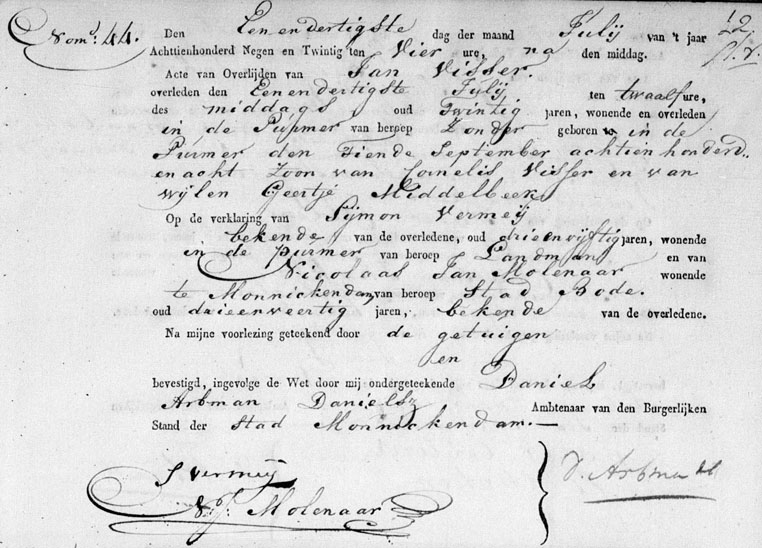 Nom.r 44.
Den Eenendertigste dag der maand Julij van 't jaar
Achttienhonderd Negen en Twintig ten Vier ure, na den middag.
Acte van Overlijden van Jan Visser.
overleden den Eenendertigste Julij ten twaalf ure,
des middags oud Twintig jaren, wonende en overleden
in de Purmer van beroep Zonder geboren in de
Purmer den Tiende September achtienhonderd
en acht Zoon van Cornelis Visser en van
wijlen Geertje Middelbeek
Op de verklaring van Sijmon Vermeij
bekende van de overledene, oud drieenvijftig jaren, wonende
in de purmer van beroep Landman en van
Nicolaas Jan Molenaar wonende
te Monnickendam, van beroep Stad Bode.
oud drieenveertig jaren, bekende van de overledene.
Na mijne voorlezing geteekend door de getuigen
en
bevestigd, ingevolge de Wet door mij ondergeteekende Daniel
Arbman Danielsz Ambtenaar van den Burgerlijken
Stand der Stad Monnickendam.—
S Vermeij
N. J. Molenaar
D. Arbman